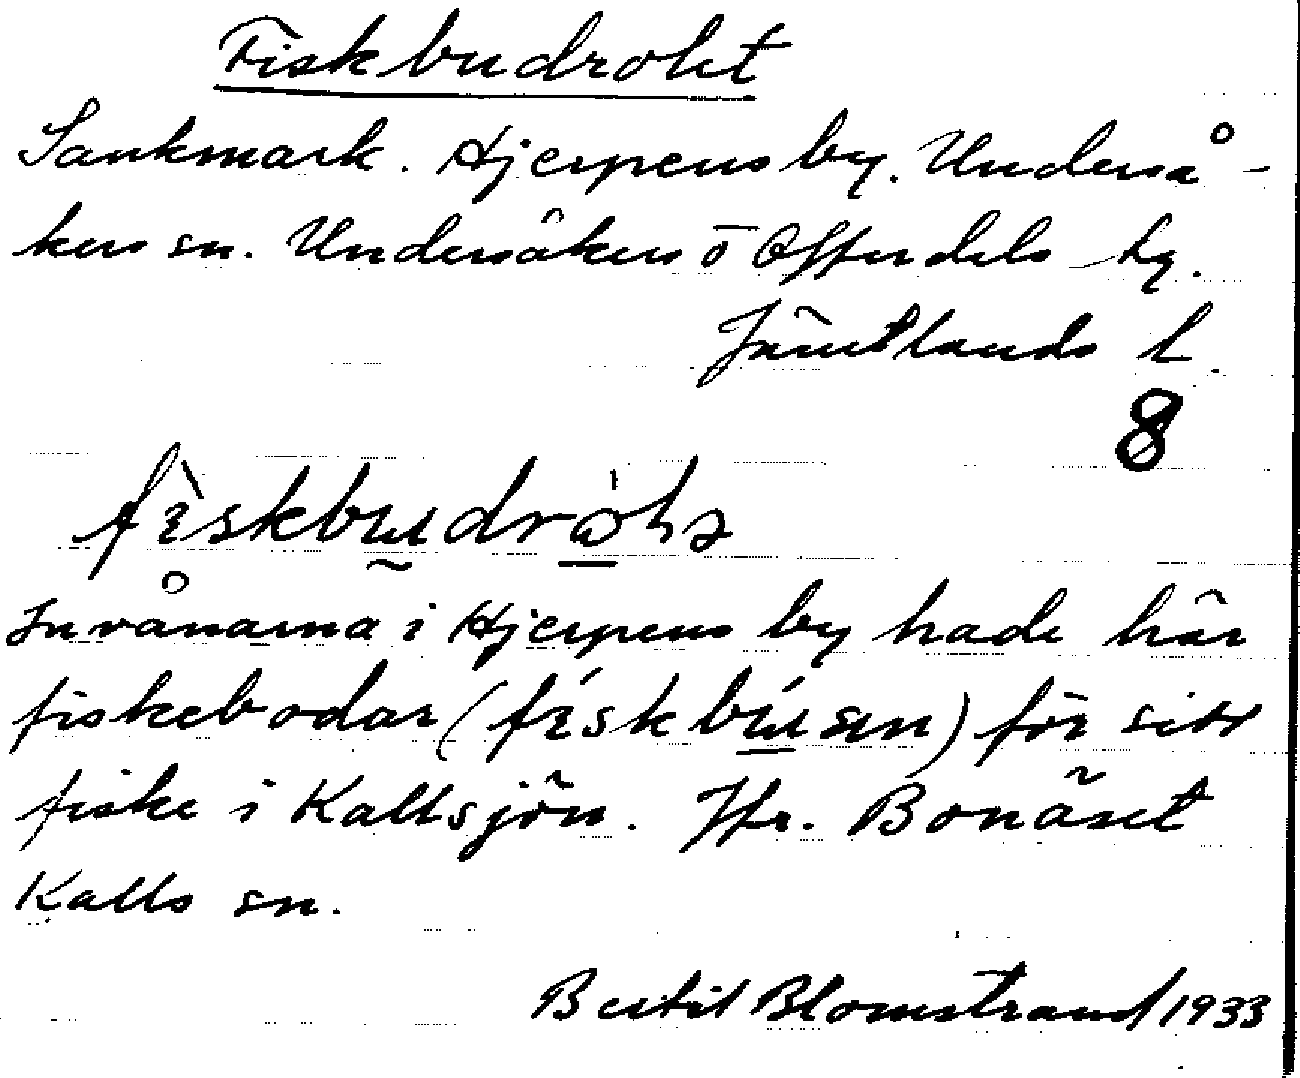 Fiskbudrolit
Sankmark. Hjerpens by. Underså-
kers sn. Undersåkers o Offerdals tg.
Jämtlands l.
8
Invånarna i Hjerpens by hade här
fiskebodar (fískbúan) för sitt
fiske i Kallsjön. Jfr. Bonäset
Kalls sn.
Bertil Blomstrand/1933